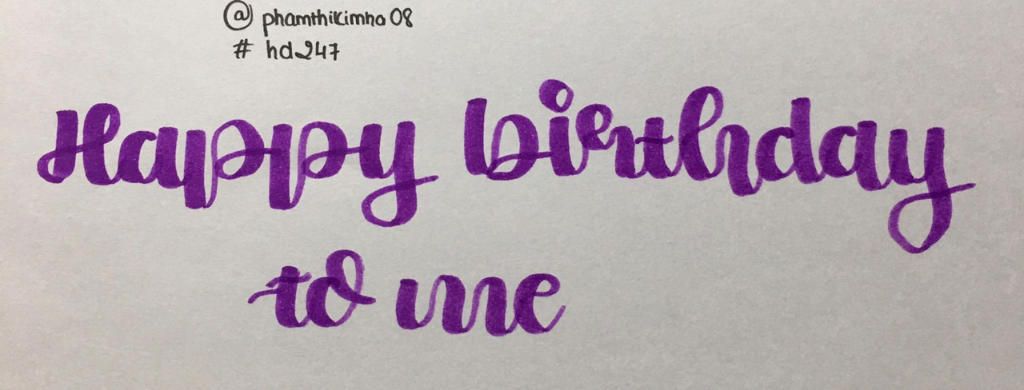 @ phamthikimha 08
# hd247
Happy birthday
to me